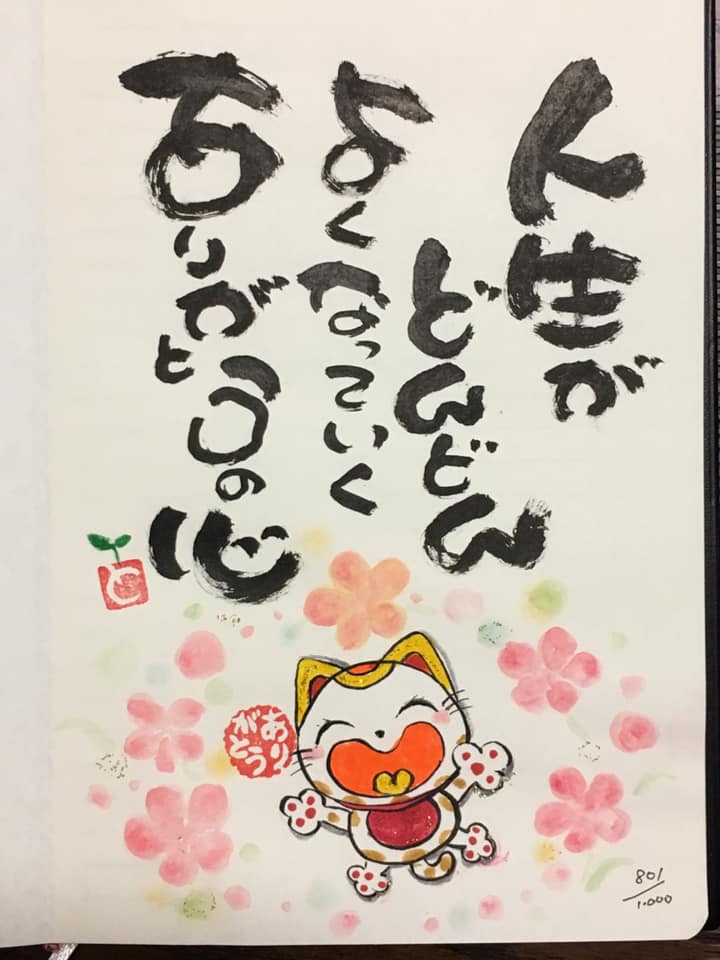 人生が
どんどん
よくなっていく
ありがとうの心
と
ありがとう
801/1.000